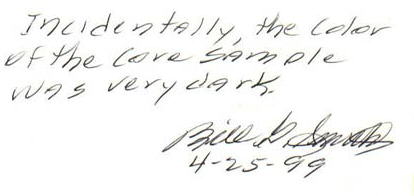 Incidentally, the color
of the core sample
was very dark.
Bill G. Smith
4-25-99